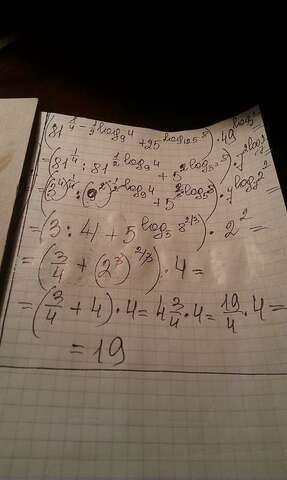 (81^{\frac{1}{4} - \frac{1}{2}log_9 4} + 25^{log_{125} 8}) · 49^{log_7 2} =
= (81^{\frac{1}{4}} : 81^{\frac{1}{2}log_9 4} + 5^{2log_{5^3} 8}) · 7^{2log_7 2} =
= (3^{4})^{\frac{1}{4}} : (9^{2})^{\frac{1}{2}log_9 4} + 5^{\frac{2}{3}log_5 8}) · 7^{log_7 2^2} =
= (3 : 4 + 5^{log_5 8^{2/3}}) · 2^2 =
= (\frac{3}{4} + (2^3)^{2/3}) · 4 =
= (\frac{3}{4} + 4) · 4 = 4\frac{3}{4} · 4 = \frac{19}{4} · 4 =
= 19